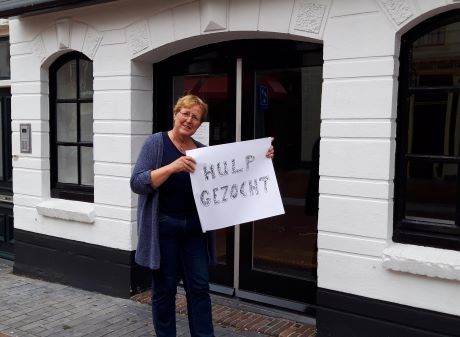 HULP
GEZOCHT